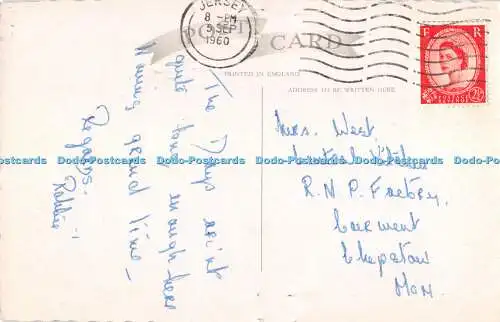 JERSEY
8 - PM
5 SEP
1960
POST CARD
PRINTED IN ENGLAND
ADDRESS TO BE WRITTEN HERE
E R
POSTAGE REVENUE
2½D
The Days ain't
quite long enough here
Having grand time -
Regards.
Robbie
Mrs. West,
Central Kitchen
R. N. P. Factory,
Caerwent
Chepstow
Mon.
Dodo-Postcards Dodo-Postcards Dodo-Postcards Dodo-Postcards Dodo-Postcards Dodo-Postcards